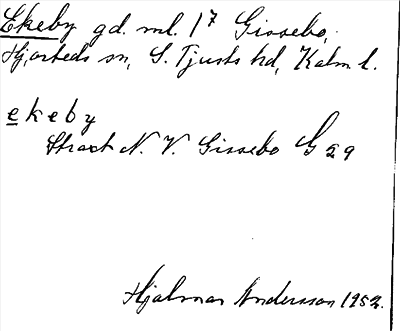 Ekeby gd. ml. 1⁷ Gissebo,
Hjorteds sn, S. Tjusts hd, Kalm l.
ekeby
Straxt N. V. Gissebo G 29
Hjalmar Andersson 1952.